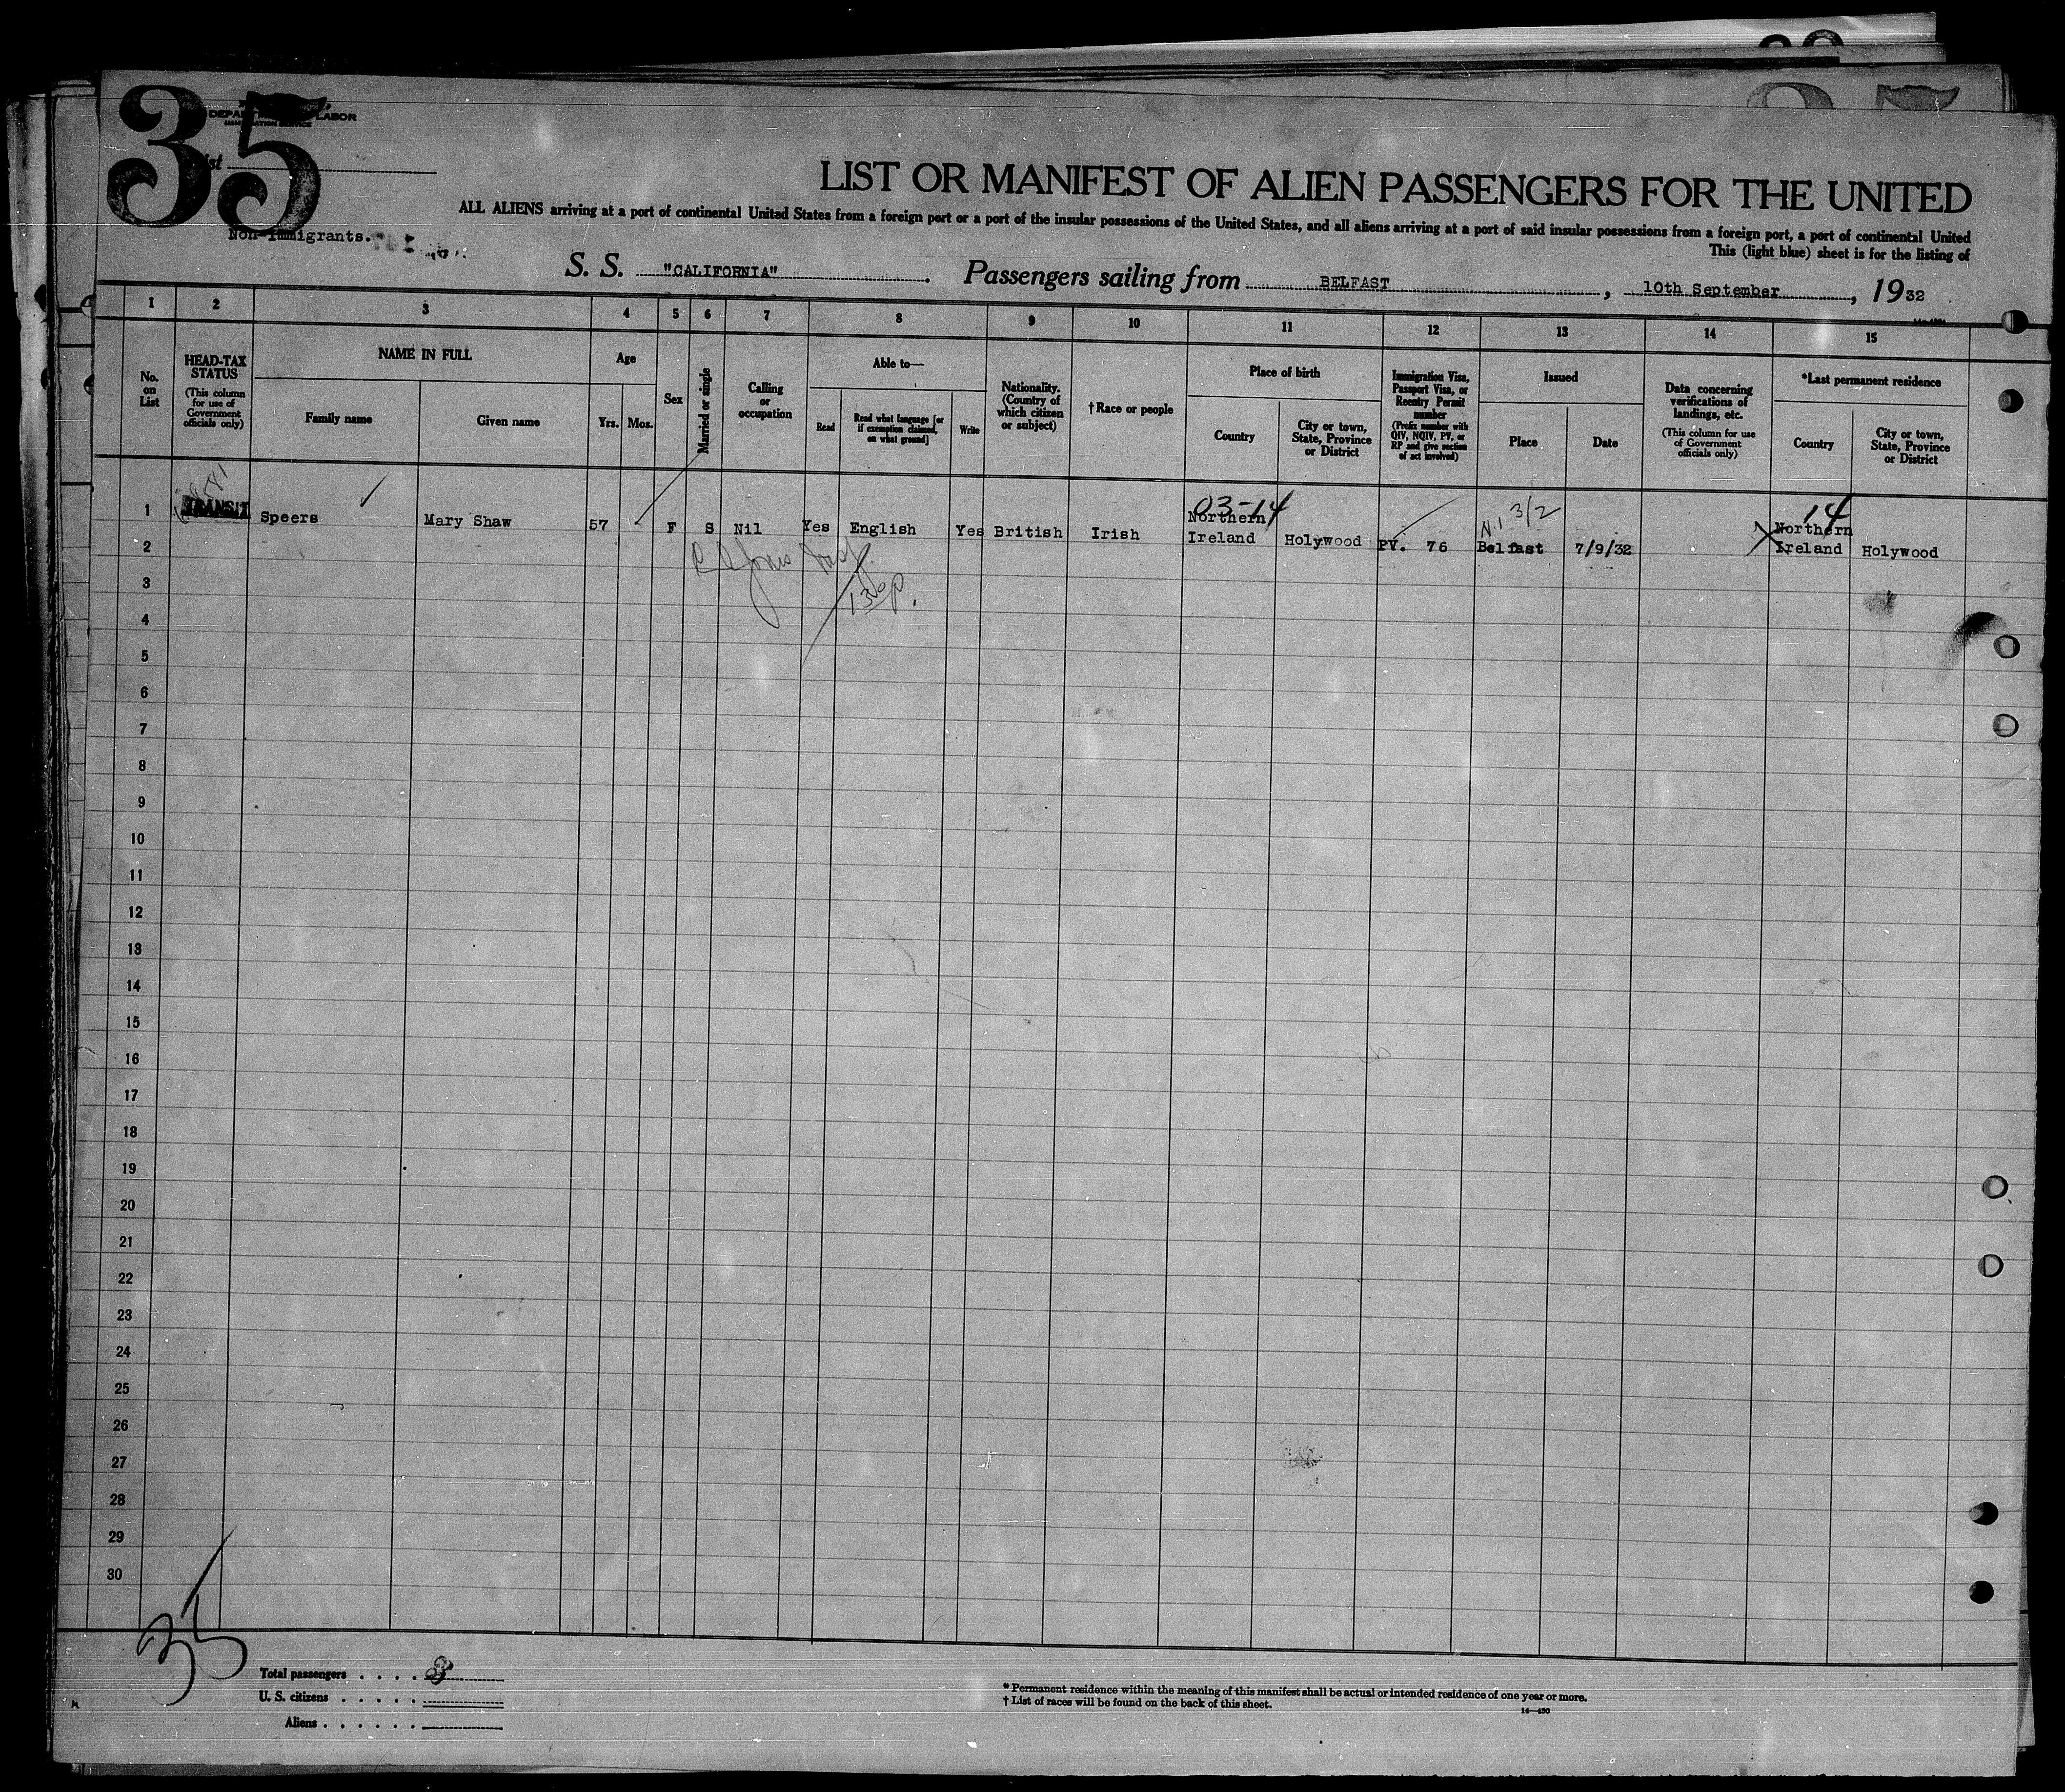 35
LABOR
Non-Immigrants.
LIST OR MANIFEST OF ALIEN PASSENGERS FOR THE UNITED
ALL ALIENS arriving at a port of continental United States from a foreign port or a port of the insular possessions of the United States, and all aliens arriving at a port of said insular possessions from a foreign port, a port of continental United
This (light blue) sheet is for the listing of
S. S. "CALIFORNIA". Passengers sailing from BELFAST, 10th September, 1932
1 2 3 4 5 6 7 8 9 10 11 12 13 14 15
No. on List
HEAD-TAX STATUS
(This column for use of Government officials only)
NAME IN FULL
Family name
Given name
Age
Yrs. Mos.
Sex
Married or single
Calling or occupation
Able to—
Read
Read what language [or if exemption claimed, on what ground]
Write
Nationality. (Country of which citizen or subject)
†Race or people
Place of birth
Country
City or town, State, Province or District
Immigration Visa, Passport Visa, or Reentry Permit number
(Prefix number with QIV, NQIV, PV, or RP and give section of act involved)
Issued
Place
Date
Data concerning verifications of landings, etc.
(This column for use of Government officials only)
*Last permanent residence
Country
City or town, State, Province or District
03-14
14
N.I 3/2
1 TRANSIT Speers Mary Shaw 57 F S Nil Yes English Yes British Irish Northern Ireland Holywood PV. 76 Belfast 7/9/32 Northern Ireland Holywood
2
3
4
5
6
7
8
9
10
11
12
13
14
15
16
17
18
19
20
21
22
23
24
25
26
27
28
29
30
35
Total passengers . . . .
U. S. citizens . . . . .
Aliens . . . . . .
* Permanent residence within the meaning of this manifest shall be actual or intended residence of one year or more.
† List of races will be found on the back of this sheet.
14—430